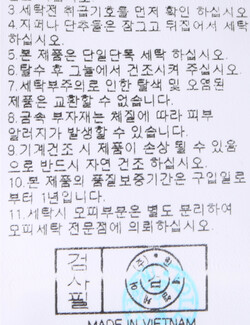 3.세탁전 취급기호를 먼저 확인 하십시오
4.지퍼나 단추등은 잠그고 뒤집어서 세탁
하십시오.
5.본 제품은 단일단독 세탁 하십시오.
6.탈수 후 그늘에서 건조시켜 주십시오
7.세탁부주의로 인한 탈색 및 오염된
제품은 교환할 수 없습니다.
8.금속 부자재는 체질에 따라 피부
알러지가 발생할 수 있습니다.
9.기계건조 시 제품이 손상 될 수 있음
으로 반드시 자연 건조 하십시오.
10.본 제품의 품질보증기간은 구입일로
부터 1년입니다.
11.세탁시 모피부분은 별도 분리하여
모피세탁 전문점에 의뢰하십시오.
검
사
필
MADE IN VIETNAM